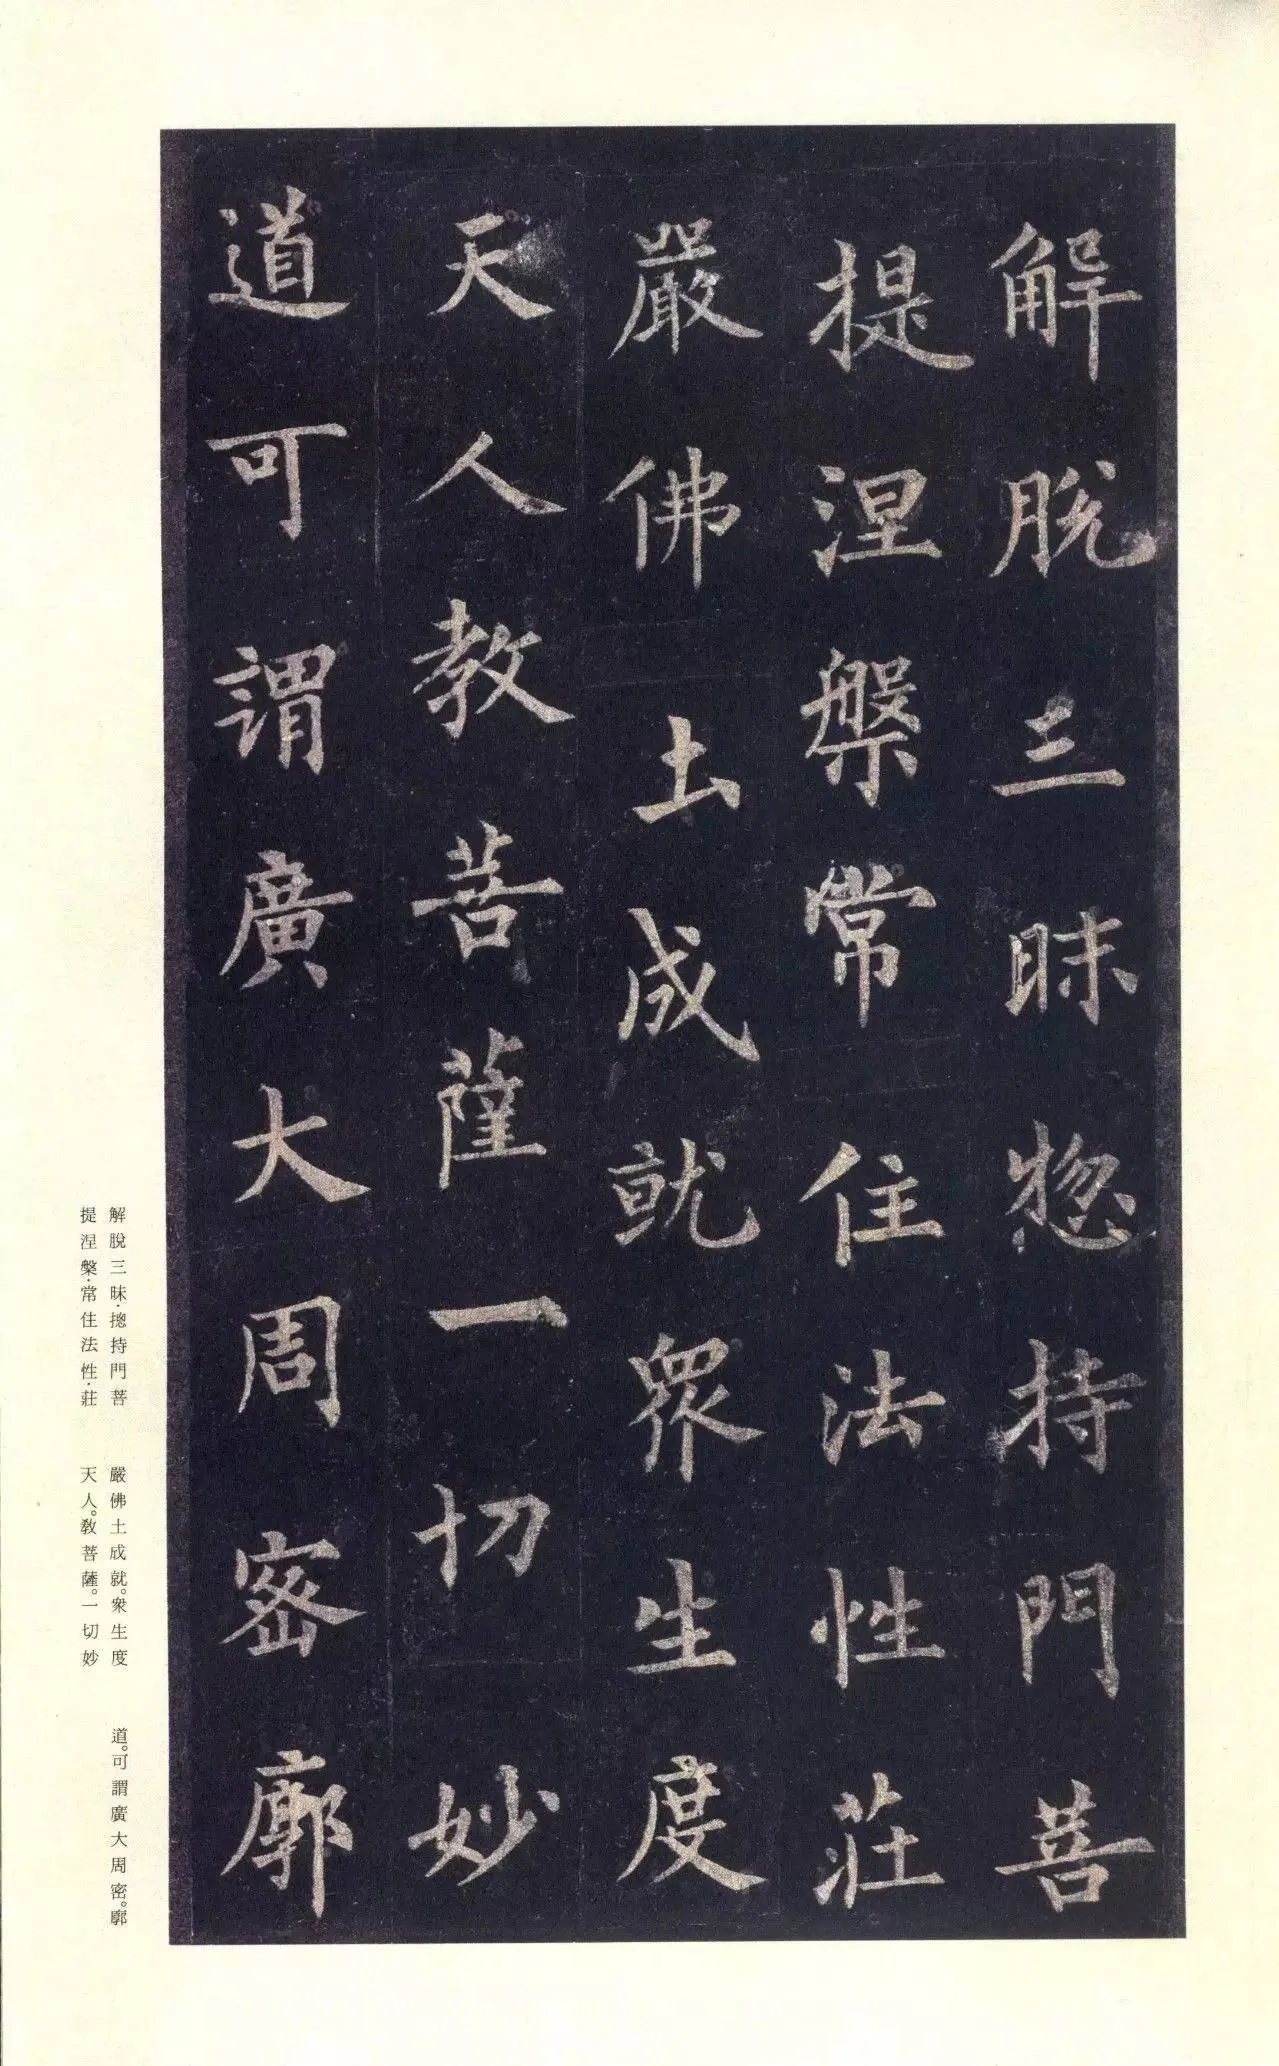 解脫三昧惣持門菩
提涅槃常住法性莊
嚴佛土成就眾生度
天人教菩薩一切妙
道可謂廣大周密廓
解脫三昧·摠持門菩
提涅槃·常住法性·莊
嚴佛土成就。衆生度
天人。敎菩薩。一切妙
道。可謂廣大周密。廓